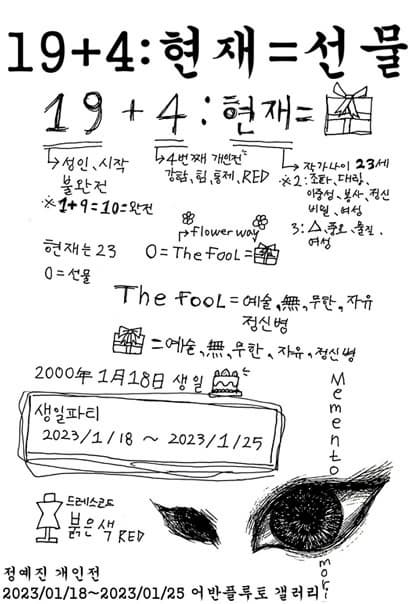 19+4:현재=선물
19+4:현재=
성인, 시작
불완전
※1+9=10=완전
4번째 개인전
감람, 힘, 통제, RED
작가나이 23세
※2: 조화, 대립,
이중성, 봉사, 정신
비밀, 여성
3: △, 풍요, 물질,
여성
현재는 23
0=선물
flower way
0=The FooL=
The FooL=예술, 無, 무한, 자유
정신병
=예술, 無, 무한, 자유, 정신병
2000年 1月 18日 생일
생일파티
2023/1/18 ~ 2023/1/25
Memento mori
드레스코드
붉은색 RED
정예진 개인전
2023/01/18~2023/01/25 어반플루토 갤러리